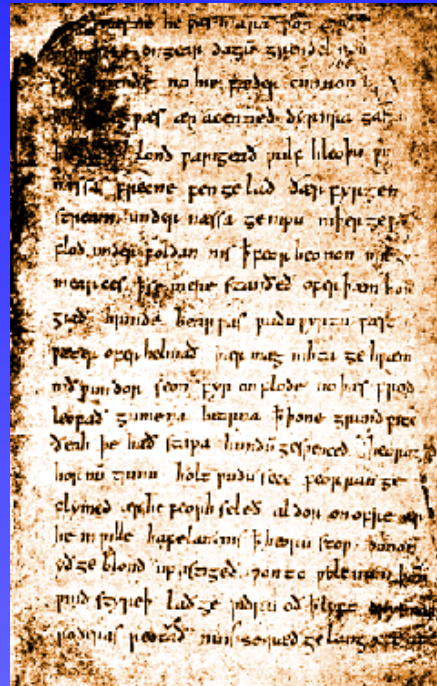 he ƿæs mara þon
geardagū grendel
no hie fæder cunnon
ƿæs ær acenned dyrnra gas
lond ƿarigeað ƿulf hleoþu
næssas frecne fen ge lad ðær fyrgen
stream under næssa genipu niþer ge
flod under foldan nis ꝥ feor heonon mil
mearces ꝥ se mere standeð ofer þæm hon
giað hrinde bearƿas ƿudu ƿyrtū fæst
ƿæter ofer helmað þær mæg nihta ge hƿæm
nið ƿundor seon fyr on flode no þæs frod
leofað gumena bearna ꝥ þone grund ƿite
ðeah þe hæð stapa hundū gesƿenced heorot
hornū trum holt ƿudu sece feorran ge
flymed ær he feorh seleð aldor on ofre ær
he in ƿille hafelan nis ꝥ heoru stoƿ þonon
yð ge blond up astigeð ƿon to ƿolcnum þon
ƿind styreþ lað ge ƿidru oð ꝥ lyft
roderas reotað nu is se ræd ge lang